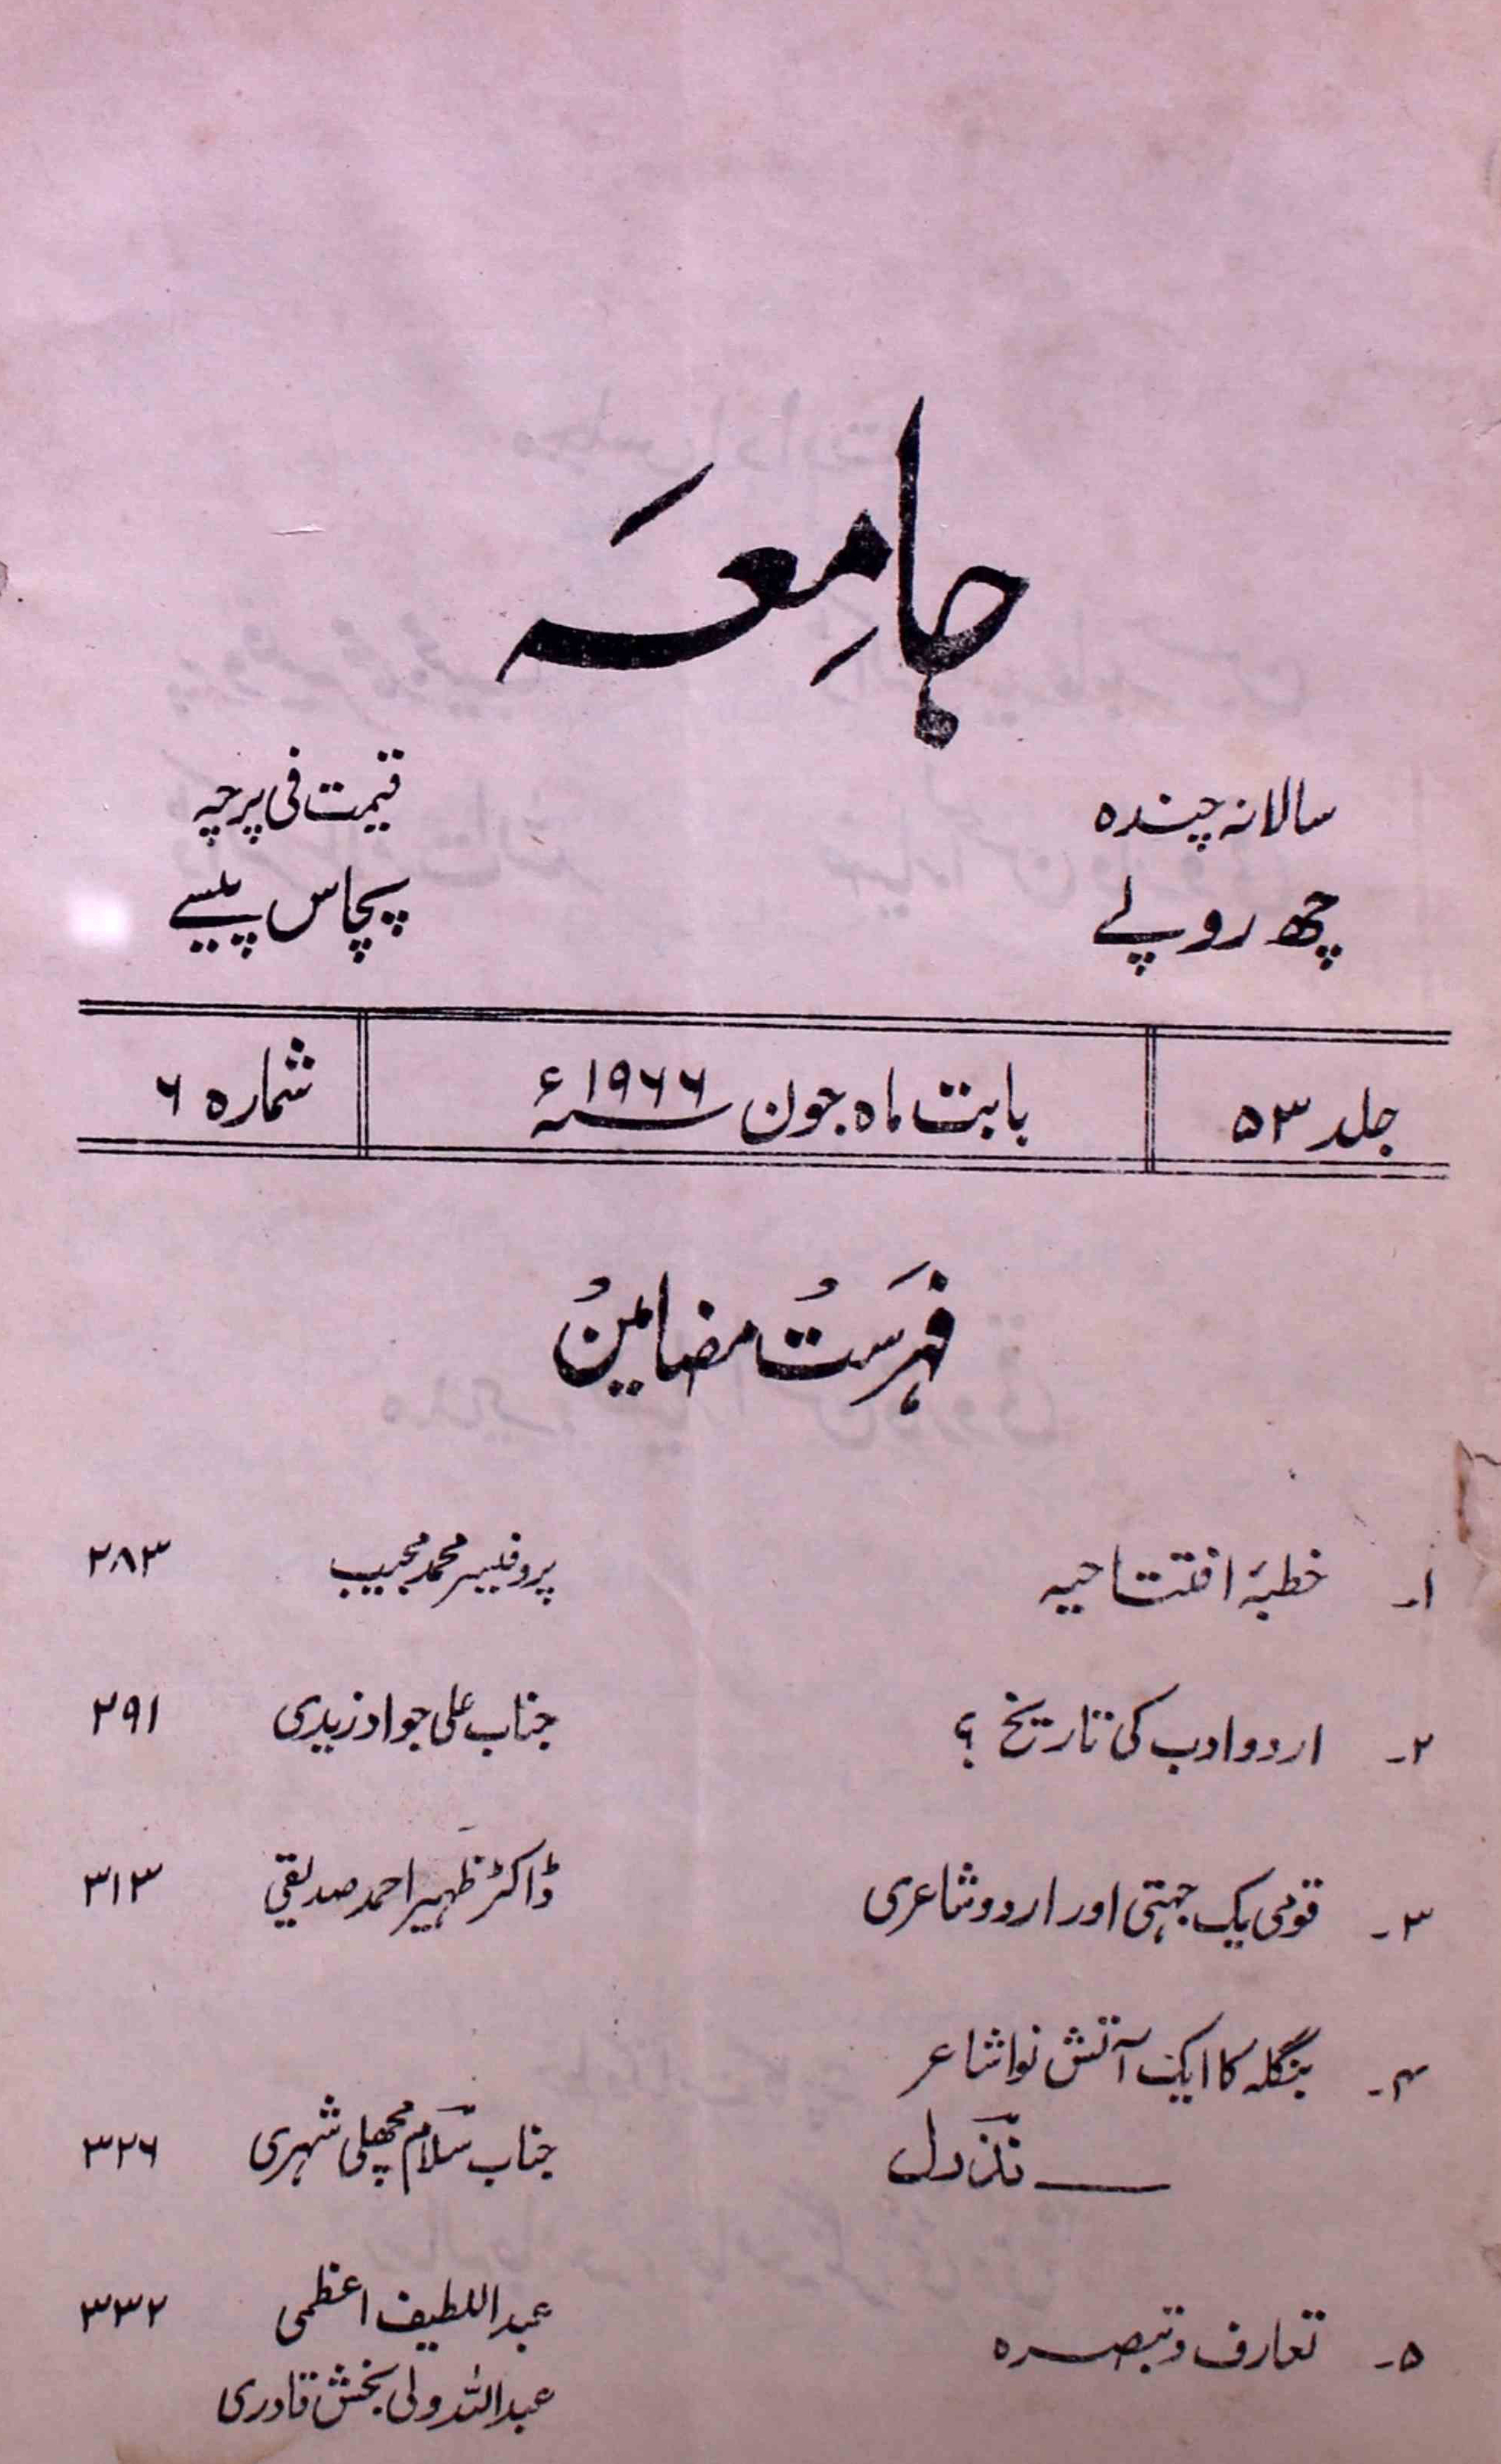 جامعہ
سالانہ چندہ
چھ روپے
قیمت فی پرچہ
پچاس پیسے
جلد ۵۳
بابت ماہ جون ۱۹۶۶ء
شمارہ ۶
فہرست مضامین
۱۔ خطبۂ افتتاحیہ پروفیسر محمد مجیب ۲۸۳
۲۔ اردو ادب کی تاریخ ؟ جناب علی جواد زیدی ۲۹۱
۳۔ قومی یک جہتی اور اردو شاعری ڈاکٹر ظہیر احمد صدیقی ۳۱۳
۴۔ بنگلہ کا ایک آتش نوا شاعر
—— نذرل جناب سلام مچھلی شہری ۳۲۶
۵۔ تعارف و تبصرہ عبد اللطیف اعظمی ۳۳۲
عبداللہ ولی بخش قادری